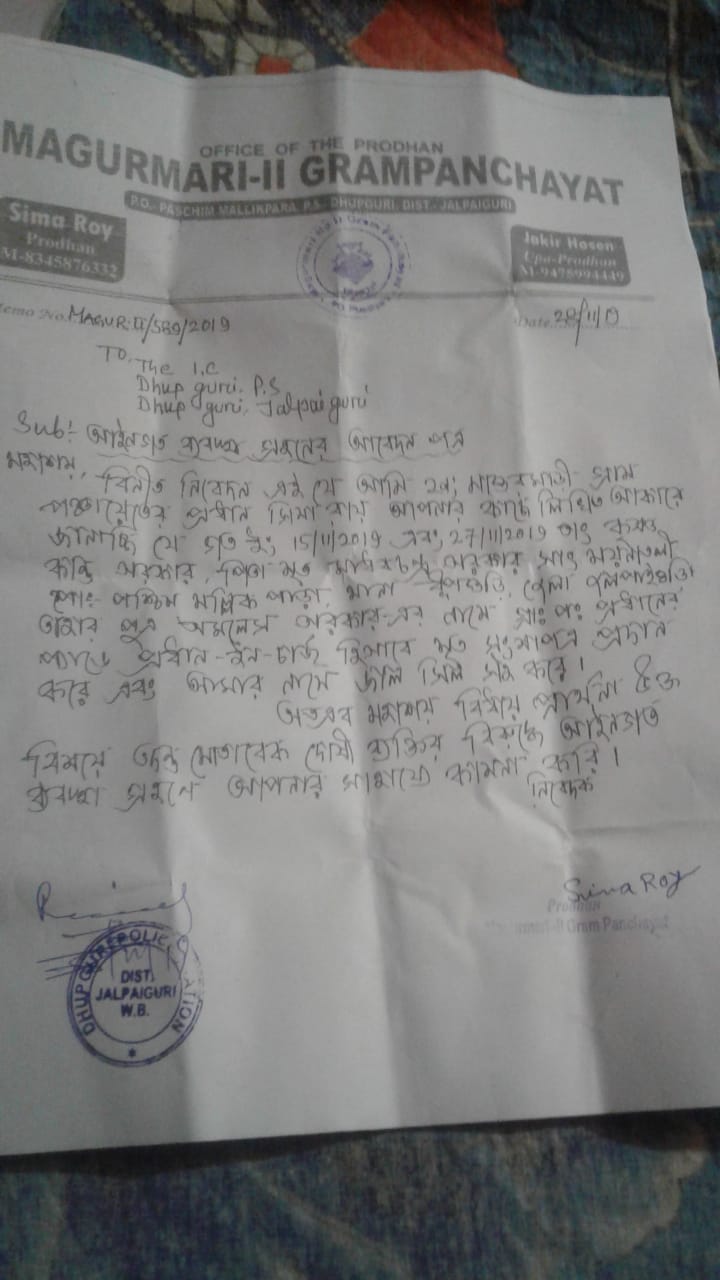 OFFICE OF THE PRODHAN
MAGURMARI-II GRAMPANCHAYAT
P.O.- PASCHIM MALLIKPARA, P.S.- DHUPGURI, DIST.- JALPAIGURI
Sima Roy
Prodhan
M-8345876332
Jakir Hosen
Upa-Prodhan
M-9475994449
Memo No. MAGUR:II/589/2019
Date 28/11/
TO,
The I.C
Dhup guri. P.S
Dhup guri, Jalpaiguri
Sub! আইনগত ব্যবস্থা গ্রহনের আবেদন পত্র
মহাশয়,
বিনীত নিবেদন এই যে আমি ২নং মাগুরমারী গ্রাম
পঞ্চায়েতের প্রধান সিমা রায় আপনার কাছে লিখিত আকারে
জানাচ্ছি যে গত ইং 15/11/2019 এবং 27/11/2019 তাং
কান্তি সরকার, পিতা মৃত সরকার সাং ময়নাতলী
পোঃ- পশ্চিম মল্লিক পাড়া, থানা ধুপগুড়ি, জেলা জলপাইগুড়ি
তাহার পুত্র সরকার-এর নামে গ্রাঃ পঃ প্রধানের
প্যাডে প্রধান-ইন-চার্জ হিসাবে মৃত প্রদান
করে এবং আমার নামে জাল সিল সই করে।
অতএব মহাশয় বিষয়ে প্রার্থনা উক্ত
বিষয়ে তদন্ত মোতাবেক দোষী ব্যক্তির বিরুদ্ধে আইনগত
ব্যবস্থা গ্রহণে আপনার সাহায্যে কামনা করি।
নিবেদক
Sima Roy
Prodhan
Magurmari-II Gram Panchayat
DHUPGURI POLICE STATION
DIST.
JALPAIGURI
W.B.